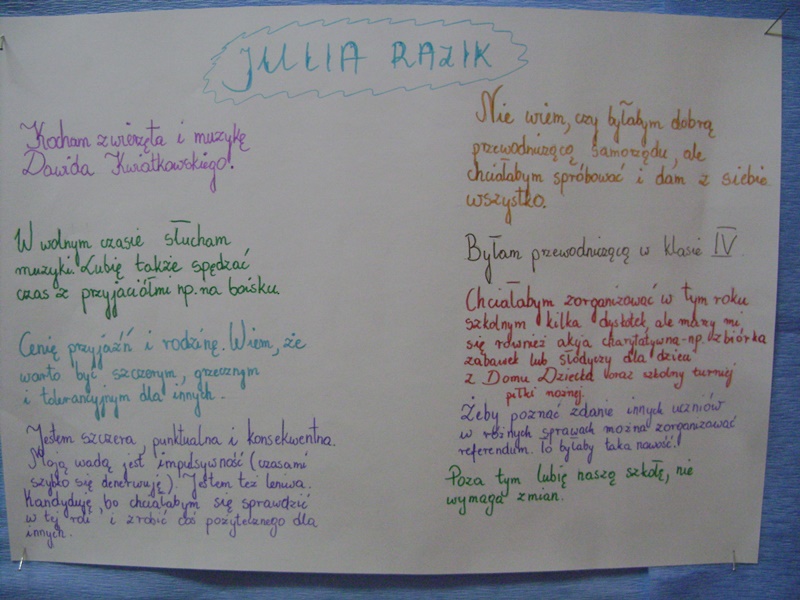 JULIA RAZIK
Kocham zwierzęta i muzykę
Dawida Kwiatkowskiego!
W wolnym czasie słucham
muzyki. Lubię także spędzać
czas z przyjaciółmi np. na boisku.
Cenię przyjaźń i rodzinę. Wiem, że
warto być szczerym, grzecznym
i tolerancyjnym dla innych.
Jestem szczera, punktualna i konsekwentna.
Moją wadą jest impulsywność (czasami
szybko się denerwuję). Jestem też leniwa.
Kandyduję, bo chciałabym się sprawdzić
w tej roli i zrobić coś pożytecznego dla
innych.
Nie wiem, czy byłabym dobrą
przewodniczącą samorządu, ale
chciałabym spróbować i dam z siebie
wszystko.
Byłam przewodniczącą w klasie IV.
Chciałabym zorganizować w tym roku
szkolnym kilka dyskotek, ale marzy mi
się również akcja charytatywna - np. zbiórka
zabawek lub słodyczy dla dzieci
z Domu Dziecka oraz szkolny turniej
piłki nożnej.
Żeby poznać zdanie innych uczniów
w różnych sprawach można zorganizować
referendum. To byłaby taka nowość.
Poza tym lubię naszą szkołę, nie
wymaga zmian.